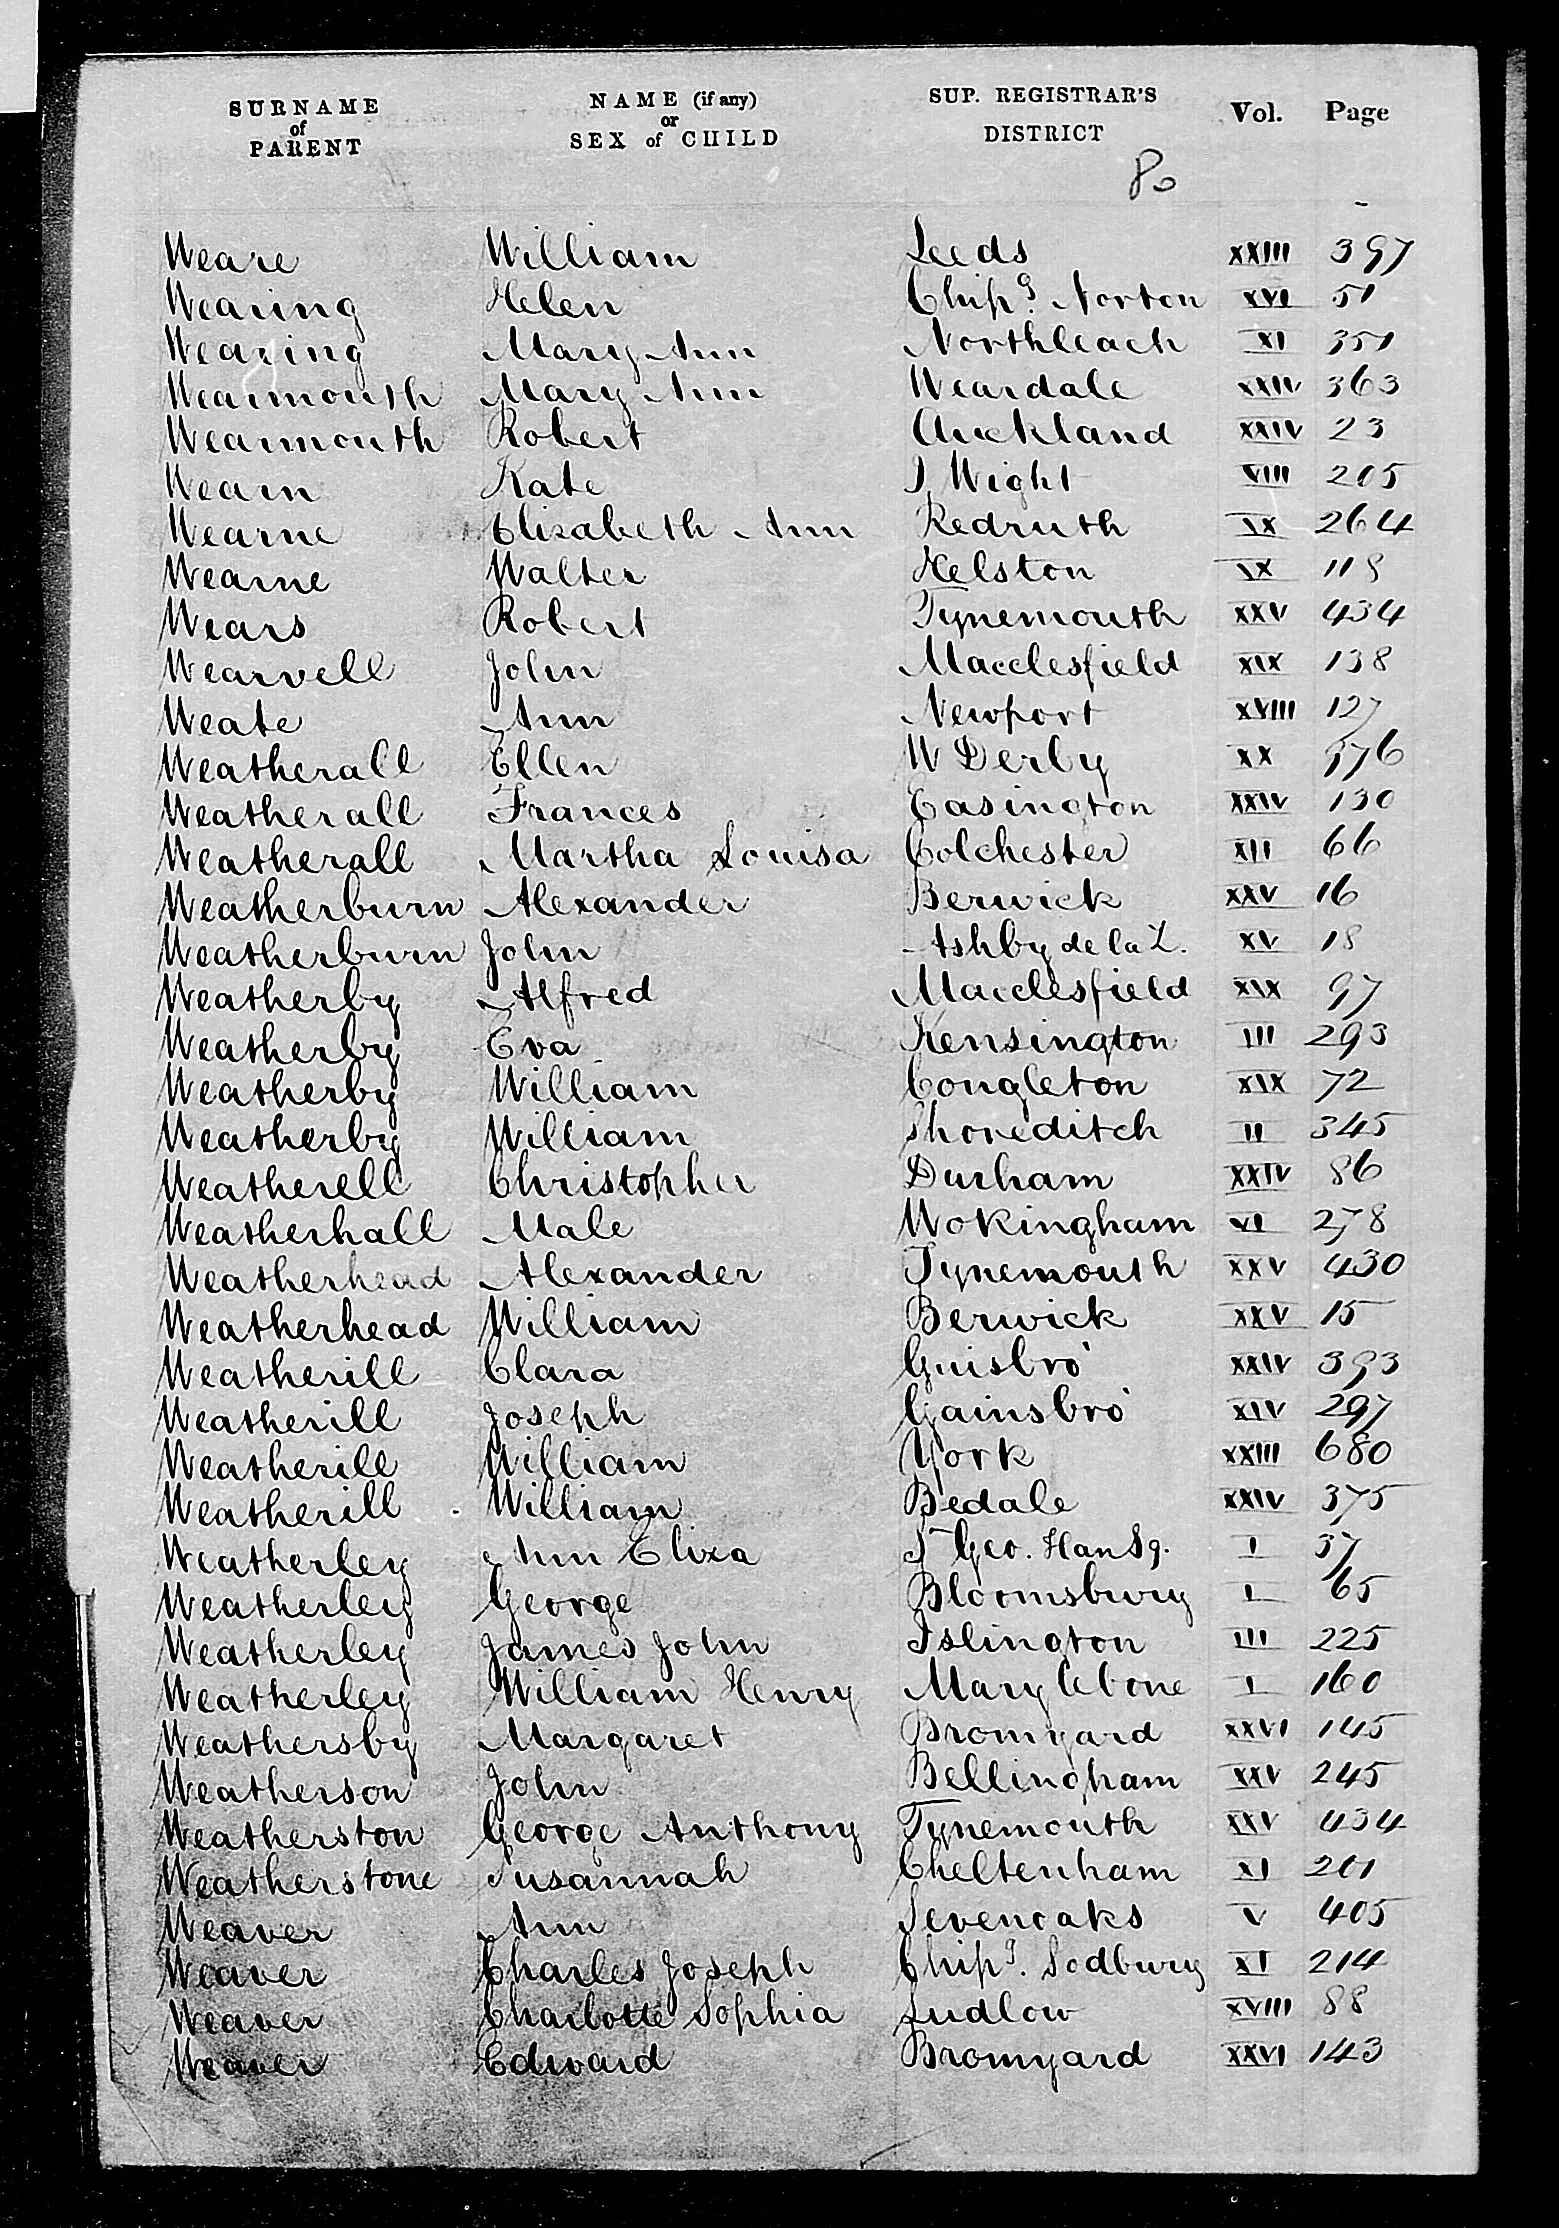 SURNAME of PARENT NAME (if any) or SEX of CHILD SUP. REGISTRAR'S DISTRICT Vol. Page
80
Weare William Leeds XXIII 397
Wearing Helen Chipg. Norton XVI 51
Wearing Mary Ann Northleach XI 351
Wearmouth Mary Ann Weardale XXIV 363
Wearmouth Robert Auckland XXIV 23
Wearn Kate I Wight VIII 205
Wearne Elizabeth Ann Redruth IX 264
Wearne Walter Helston IX 118
Wears Robert Tynemouth XXV 434
Wearvell John Macclesfield XIX 138
Weate Ann Newport XVIII 127
Weatherall Ellen W Derby XX 576
Weatherall Frances Easington XXIV 130
Weatherall Martha Louisa Colchester XII 66
Weatherburn Alexander Berwick XXV 16
Weatherburn John Ashby de la Z. XV 18
Weatherby Alfred Macclesfield XIX 97
Weatherby Eva Kensington III 293
Weatherby William Congleton XIX 72
Weatherby William Shoreditch II 345
Weatherell Christopher Durham XXIV 86
Weatherhall Male Wokingham VI 278
Weatherhead Alexander Tynemouth XXV 430
Weatherhead William Berwick XXV 15
Weatherill Clara Guisbro' XXIV 393
Weatherill Joseph Gainsbro' XIV 297
Weatherill William York XXIII 680
Weatherill William Bedale XXIV 375
Weatherley Ann Eliza St Geo. Han Sq. I 37
Weatherley George Bloomsbury I 65
Weatherley James John Islington III 225
Weatherley William Henry Marylebone I 160
Weathersby Margaret Bromyard XXVI 145
Weatherson John Bellingham XXV 245
Weatherston George Anthony Tynemouth XXV 434
Weatherstone Susannah Cheltenham XI 201
Weaver Ann Sevenoaks V 405
Weaver Charles Joseph Chipg. Sodbury XI 214
Weaver Charlotte Sophia Ludlow XVIII 88
Weaver Edward Bromyard XXVI 143